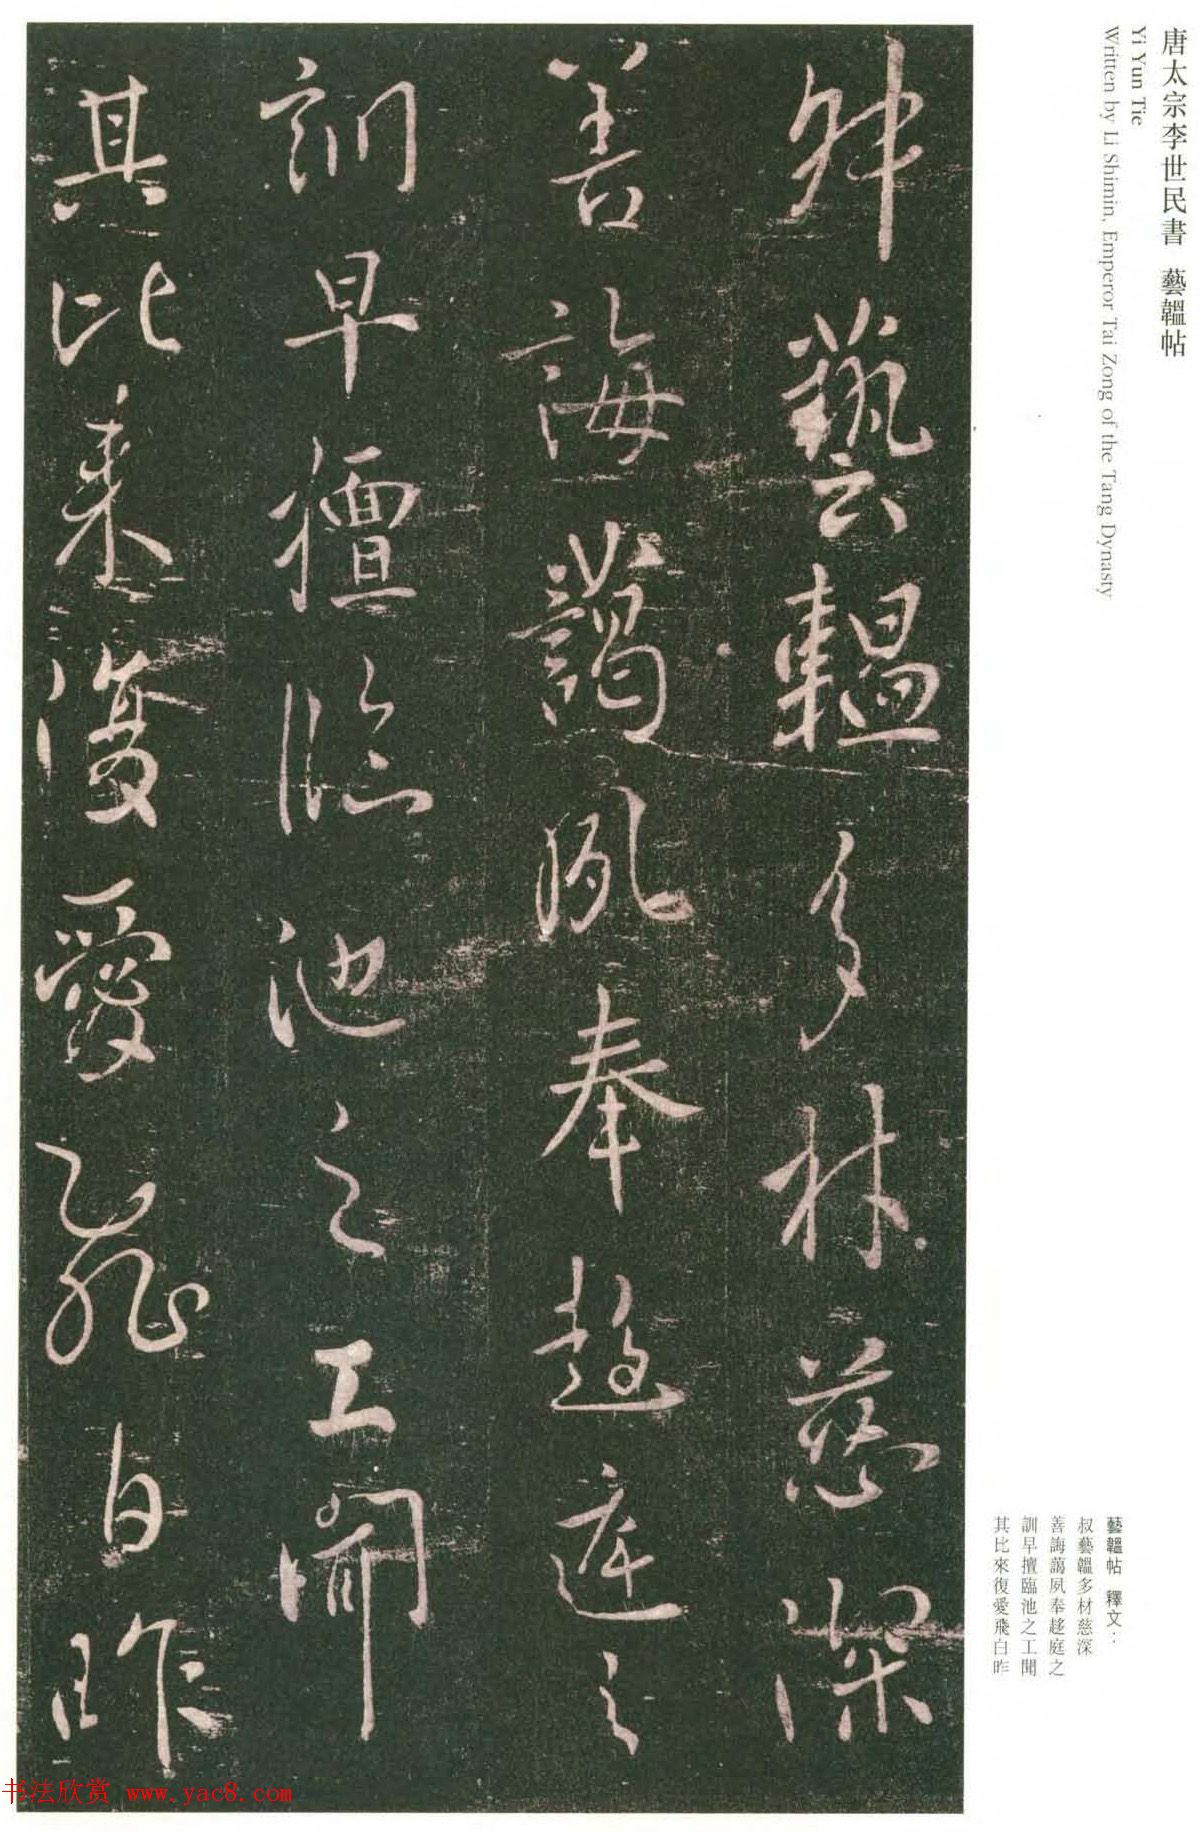 唐太宗李世民書 藝韞帖
Yi Yun Tie
Written by Li Shimin, Emperor Tai Zong of the Tang Dynasty
叔藝韞多材慈深
善誨藹夙奉趍庭之
訓早擅臨池之工聞
其比來復愛飛白昨
藝韞帖 釋文：
叔藝韞多材慈深
善誨藹夙奉趍庭之
訓早擅臨池之工聞
其比來復愛飛白昨
书法欣赏 www.yac8.com